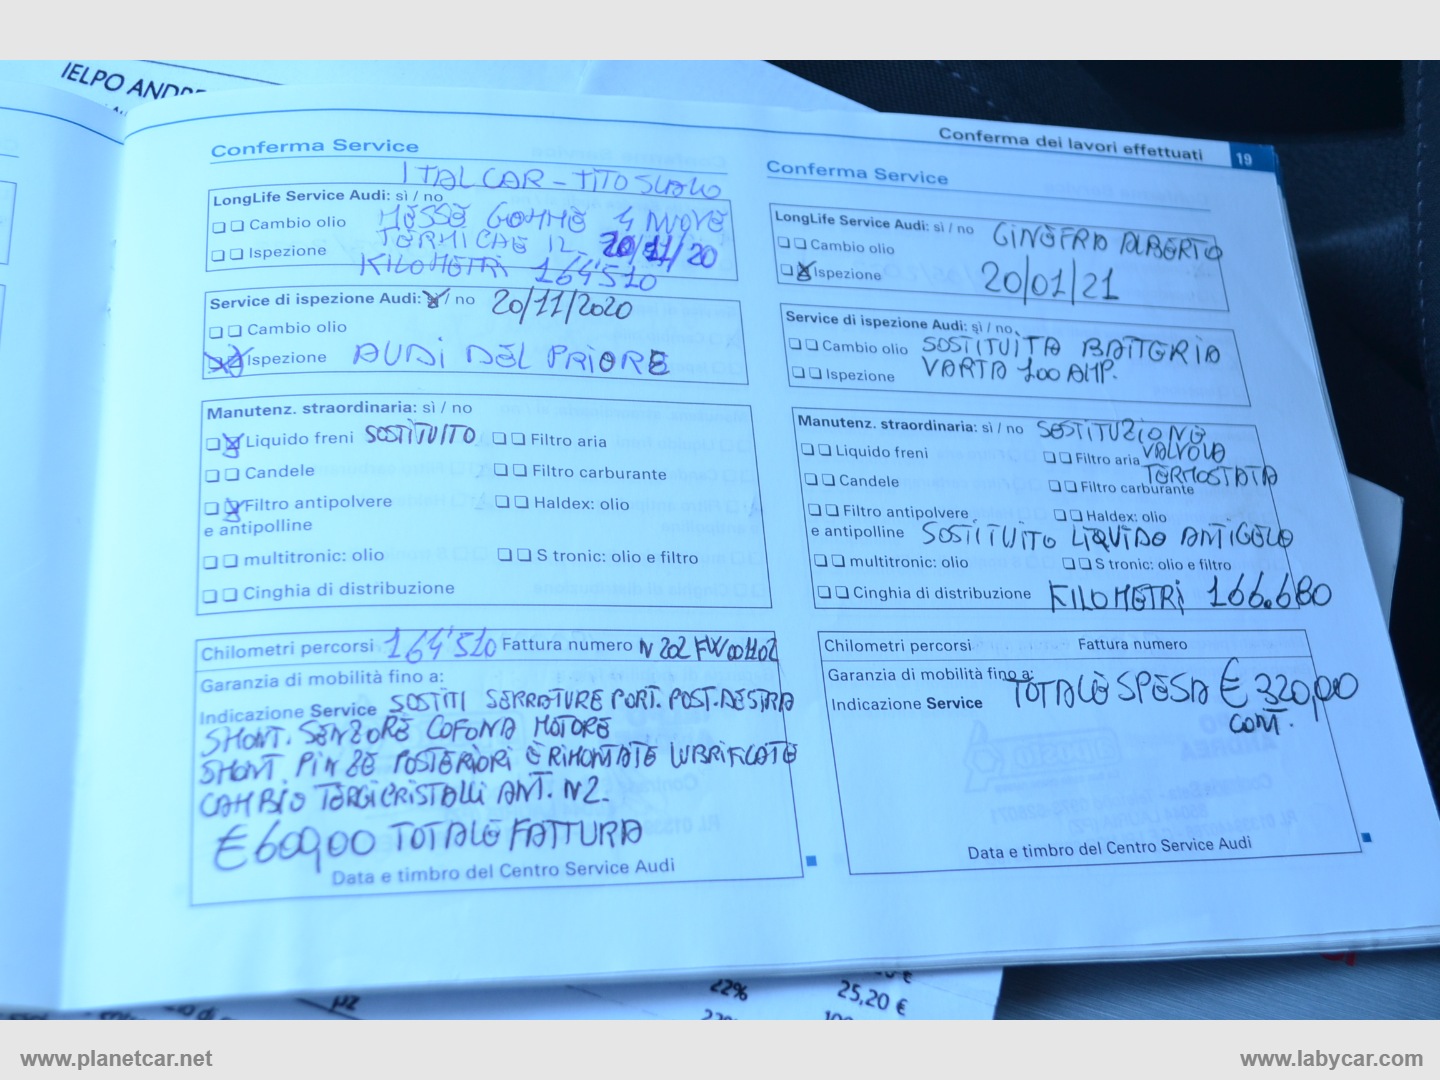 IELPO ANDRE
Conferma dei lavori effettuati 19
Conferma Service
ITALCAR - TITO SCALO
LongLife Service Audi: sì / no
Cambio olio MESSE GOMME 4 NUOVE
Ispezione TERMICHE IL 20/11/20
KILOMETRI 164'510
Service di ispezione Audi: / no 20/11/2020
Cambio olio
Ispezione AUDI DEL PRIORE
Manutenz. straordinaria: sì / no
Liquido freni SOSTITUITO Filtro aria
Candele Filtro carburante
Filtro antipolvere Haldex: olio
e antipolline
multitronic: olio S tronic: olio e filtro
Cinghia di distribuzione
Chilometri percorsi 164'510 Fattura numero N 202 FW001102
Garanzia di mobilità fino a:
Indicazione Service SOSTITI SERRATURE PORT. POST. DESTRA
SMONT. SENZORE COFONA MOTORE
SMONT. PINZE POSTERIORI E RIMONTATE LUBRIFICATE
CAMBIO TERGICRISTALLI ANT. N2.
€ 600,00 TOTALE FATTURA
Data e timbro del Centro Service Audi
Conferma Service
LongLife Service Audi: sì / no GINEFRA ALBERTO
Cambio olio
Ispezione 20/01/21
Service di ispezione Audi: sì / no
Cambio olio SOSTITUITA BATTERIA
Ispezione VARTA 100 AMP.
Manutenz. straordinaria: sì / no SOSTITUZIONE
Liquido freni Filtro aria VALVOLA
Candele Filtro carburante TERMOSTATA
Filtro antipolvere Haldex: olio
e antipolline SOSTITUITO LIQUIDO ANTIGELO
multitronic: olio S tronic: olio e filtro
Cinghia di distribuzione KILOMETRI 166.680
Chilometri percorsi Fattura numero
Garanzia di mobilità fino a:
Indicazione Service TOTALE SPESA € 320,00
CONT.
Data e timbro del Centro Service Audi
PZ 22% 25,20 €
www.planetcar.net www.labycar.com